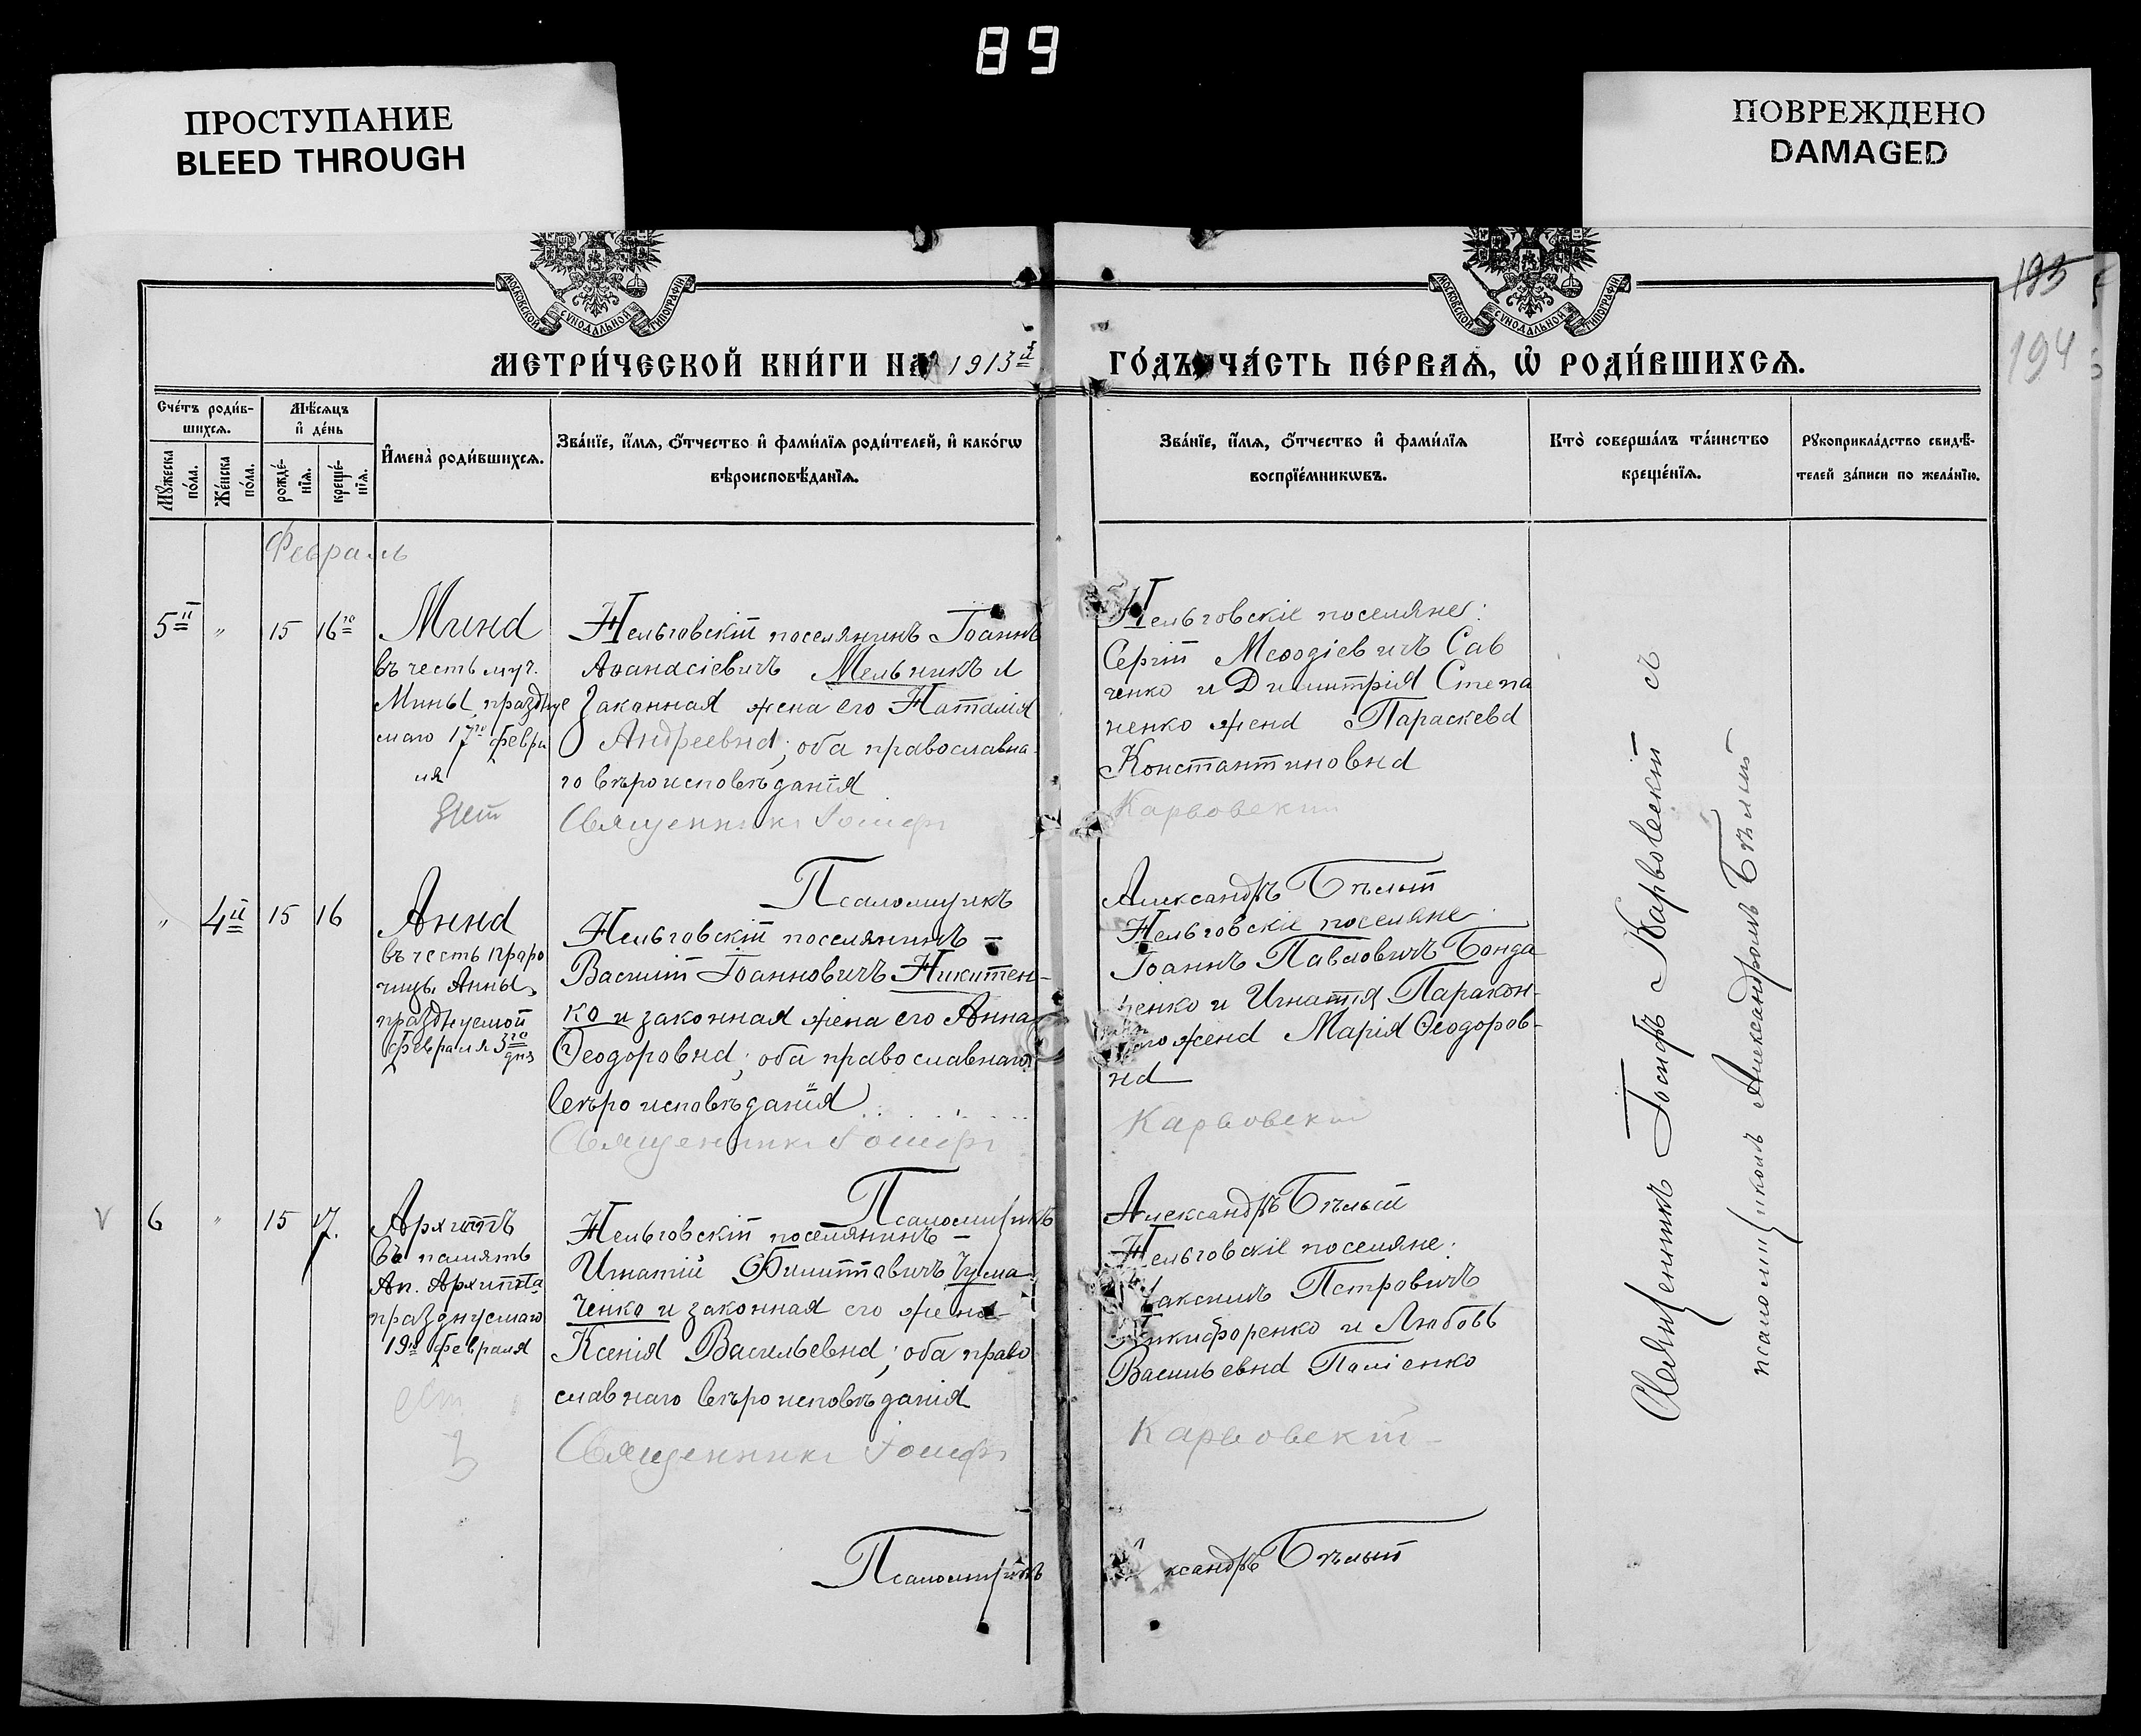 89
ПРОСТУПАНИЕ
BLEED THROUGH
ПОВРЕЖДЕНО
DAMAGED
МОСКОВСКОЙ СУНОДАЛЬНОЙ ТИПОГРАФІИ
МОСКОВСКОЙ СУНОДАЛЬНОЙ ТИПОГРАФІИ
195
194
МЕТРИ́ЧЕСКОЙ КНИ́ГИ НА 1913й ГО́ДЪ ЧА́СТЬ ПЕ́РВАѦ, Ѡ҆ РОДИ́ВШИХСѦ.
Сче́тъ роди́в-
шихсѧ.
Мꙋ́жеска по́ла.
Же́нска по́ла.
Мѣ́сѧцъ
и҆ де́нь
рожде́-
нїѧ.
креще́-
нїѧ.
И҆мена̀ роди́вшихсѧ.
Зва́нїе, и҆́мѧ, ѻ҆́тчество и҆ фами́лїѧ роди́телей, и҆ како́гѡ
вѣроисповѣ́данїѧ.
Зва́нїе, и҆́мѧ, ѻ҆́тчество и҆ фами́лїѧ
воспрїе́мникѡвъ.
Кто̀ соверша́лъ та́инство
креще́нїѧ.
Рꙋкоприкла́дство свидѣ́-
телей за́писи по жела́нїю.
Февраль
5й " 15 16го
Мина
въ честь муч.
Мины, праздуе
маго 17го февра
ля
Нельговскій поселянинъ Іоаннъ
Аѳанасіевичъ Мельникъ и
законная жена его Наталія
Андреевна; оба православна-
го вѣроисповѣданія
Священникъ Іосифъ
Псаломщикъ
Нельговскіе поселяне:
Сергій Меѳодіевичъ Сав
ченко и Димитрія Степа
ненко жена Параскева
Константиновна
Карвовскій
Александръ Бѣлый
" 4й 15 16
Анна
въ честь проро
чицы Анны,
празднуемой
февраля 3го
дня
Нельговскій поселянинъ –
Василій Іоанновичъ Никитен-
ко и законная жена его Анна
Ѳеодоровна; оба православнаго
вѣроисповѣданія
Священникъ Іосифъ
Псаломщикъ
Нельговскіе поселяне:
Іоаннъ Павловичъ Бонда
ренко и Игнатія Паракон-
жена Марія Ѳеодоров-
на
Карвовскій
Александръ Бѣлый
V 6 " 15 17.
Архиппъ
въ память
Ап. Архиппа
празднуемаго
19го февраля
Нельговскій поселянинъ –
Игнатій Филипповичъ Чума
ченко и законная его жена
Ксенія Васильевна; оба право
славнаго вѣроисповѣданія
Священникъ Іосифъ
Псаломщикъ
Нельговскіе поселяне:
Максимъ Петровичъ
Никифоренко и Любовь
Васильевна
Карвовскій
ксандръ Бѣлый
Священникъ Іосифъ Карвовскій съ
псаломщикомъ Александромъ Бѣлый